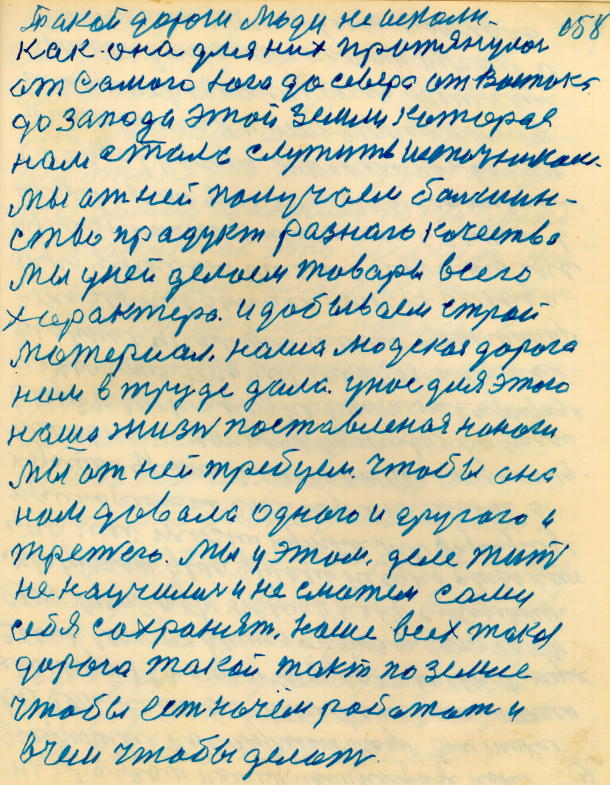 058
Такой дороги люди не исполн-
как она для них протянулся
от самого юга до севера от востока
до запода этой земли которае
нам стала служить источником.
мы от ней получаем болшин-
ство продукт разного качества
мы у ней делаем товары всего
характера. и добываем строй
материал. наша людская дорога
нам в труде дала. у нас для этого
наша жизн поставленая на ноги
мы от ней требуем. чтобы она
нам довала одного и другого и
третего. мы у этом, деле жит
не научилис и не сможем сами
себя сохранят, наше всех такая
дорога такой такт по земле
чтобы ест на чём работат и
в чем чтобы делат.